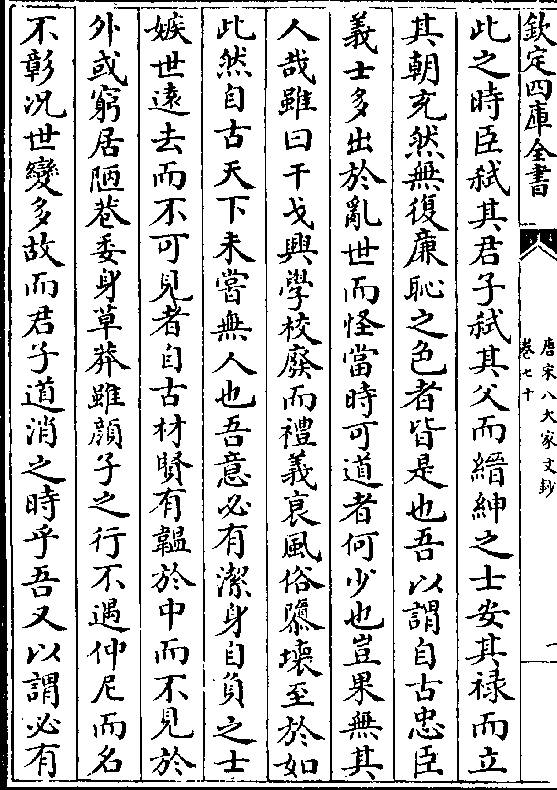 欽定四庫全書
唐宋八大家文鈔
卷七十
一
此之時臣弑其君子弑其父而縉紳之士安其禄而立
其朝充然無復廉恥之色者皆是也吾以謂自古忠臣
義士多出於亂世而怪當時可道者何少也豈果無其
人哉雖曰干戈興學校廢而禮義衰風俗隳壊至於如
此然自古天下未嘗無人也吾意必有潔身自負之士
嫉世逺去而不可見者自古材賢有韞於中而不見於
外或窮居陋巷委身草莽雖顔子之行不遇仲尼而名
不彰況世變多故而君子道消之時乎吾又以謂必有